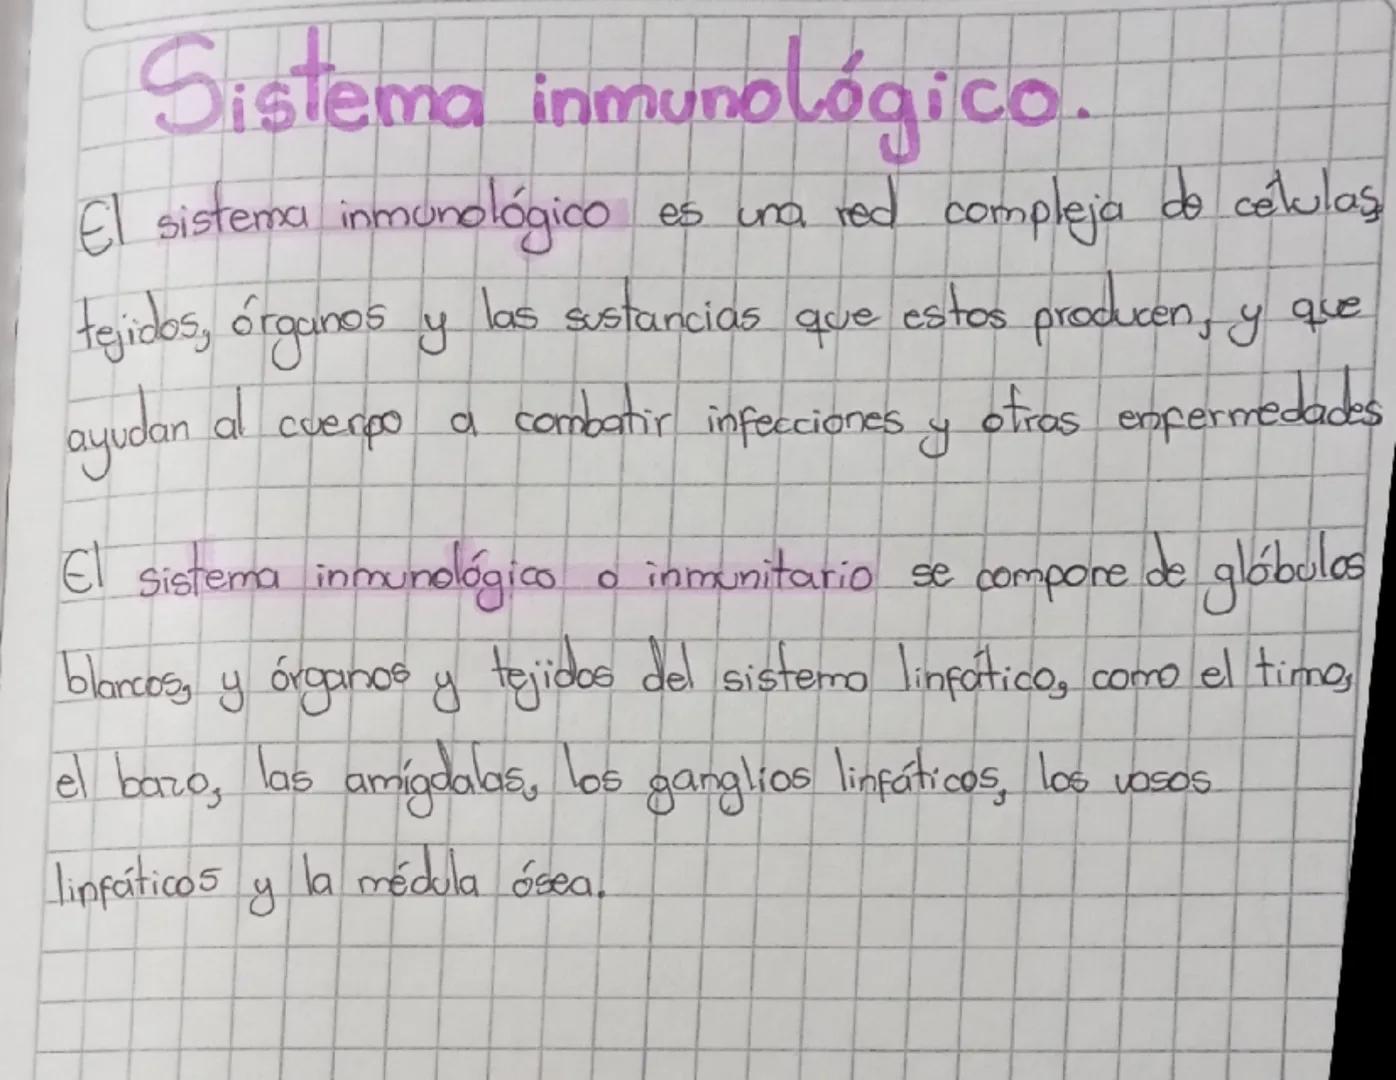 Sistema inmunológico.
El sistema inmunológico es una red compleja de células,
tejidos, órganos y las sustancias que estos producen, y que
ayudan al cuerpo a combatir infecciones y otras enfermedades
El sistema inmunológico o inmunitario se compone de glóbulos
blancos, y órganos y tejidos del sistema linfático, como el timo,
el bazo, las amígdalas, los ganglios linfáticos, los vasos
linfáticos y la médula ósea.